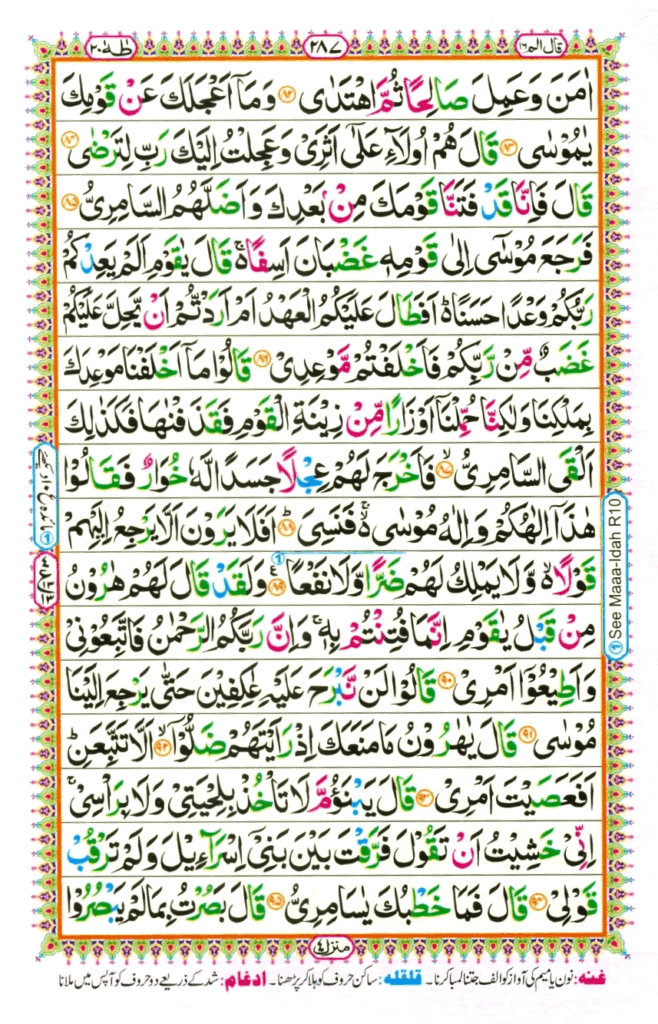 طٰهٰ ٢٠
٢٨٧
قال الم ١٦
اٰمَنَ وَعَمِلَ صَالِحًا ثُمَّ اهْتَدٰى ﴿۸۲﴾ وَمَاۤ اَعْجَلَكَ عَنْ قَوْمِكَ
يٰمُوْسٰى ﴿۸۳﴾ قَالَ هُمْ اُولَآءِ عَلٰۤى اَثَرِىْ وَعَجِلْتُ اِلَيْكَ رَبِّ لِتَرْضٰى ﴿۸۴﴾
قَالَ فَاِنَّا قَدْ فَتَنَّا قَوْمَكَ مِنْۢ بَعْدِكَ وَاَضَلَّهُمُ السَّامِرِىُّ ﴿۸۵﴾
فَرَجَعَ مُوْسٰۤى اِلٰى قَوْمِهٖ غَضْبَانَ اَسِفًا ۚ قَالَ يٰقَوْمِ اَلَمْ يَعِدْكُمْ
رَبُّكُمْ وَعْدًا حَسَنًا ؕ اَفَطَالَ عَلَيْكُمُ الْعَهْدُ اَمْ اَرَدْتُّمْ اَنْ يَّحِلَّ عَلَيْكُمْ
غَضَبٌ مِّنْ رَّبِّكُمْ فَاَخْلَفْتُمْ مَّوْعِدِىْ ﴿۸۶﴾ قَالُوْا مَاۤ اَخْلَفْنَا مَوْعِدَكَ
بِمَلْكِنَا وَلٰكِنَّا حُمِّلْنَاۤ اَوْزَارًا مِّنْ زِيْنَةِ الْقَوْمِ فَقَذَفْنٰهَا فَكَذٰلِكَ
اَلْقَى السَّامِرِىُّ ﴿۸۷﴾ فَاَخْرَجَ لَهُمْ عِجْلًا جَسَدًا لَّهٗ خُوَارٌ فَقَالُوْا
هٰذَاۤ اِلٰهُكُمْ وَاِلٰهُ مُوْسٰى ۬ فَنَسِىَ ﴿۸۸﴾ اَفَلَا يَرَوْنَ اَلَّا يَرْجِعُ اِلَيْهِمْ
قَوْلًا ۙ وَّلَا يَمْلِكُ لَهُمْ ضَرًّا وَّلَا نَفْعًا ﴿۸۹﴾ وَلَقَدْ قَالَ لَهُمْ هٰرُوْنُ
مِنْ قَبْلُ يٰقَوْمِ اِنَّمَا فُتِنْتُمْ بِهٖ ۚ وَاِنَّ رَبَّكُمُ الرَّحْمٰنُ فَاتَّبِعُوْنِىْ
وَاَطِيْعُوْۤا اَمْرِىْ ﴿۹۰﴾ قَالُوْا لَنْ نَّبْرَحَ عَلَيْهِ عٰكِفِيْنَ حَتّٰى يَرْجِعَ اِلَيْنَا
مُوْسٰى ﴿۹۱﴾ قَالَ يٰهٰرُوْنُ مَا مَنَعَكَ اِذْ رَاَيْتَهُمْ ضَلُّوْۤا ﴿۹۲﴾ اَلَّا تَتَّبِعَنِ ؕ
اَفَعَصَيْتَ اَمْرِىْ ﴿۹۳﴾ قَالَ يَبْنَؤُمَّ لَا تَاْخُذْ بِلِحْيَتِىْ وَلَا بِرَاْسِىْ ۚ
اِنِّىْ خَشِيْتُ اَنْ تَقُوْلَ فَرَّقْتَ بَيْنَ بَنِىْۤ اِسْرَآءِيْلَ وَلَمْ تَرْقُبْ
قَوْلِىْ ﴿۹۴﴾ قَالَ فَمَا خَطْبُكَ يٰسَامِرِىُّ ﴿۹۵﴾ قَالَ بَصُرْتُ بِمَا لَمْ يَبْصُرُوْا
See Maaa-Idah R10
منزل ٤
غنه: نون یا میم کی آواز کو الف جتنا لمبا کرنا۔ قلقله: ساکن حروف کو ہلا کر پڑھنا۔ ادغام: شد کے ذریعے دو حروف کو آپس میں ملانا